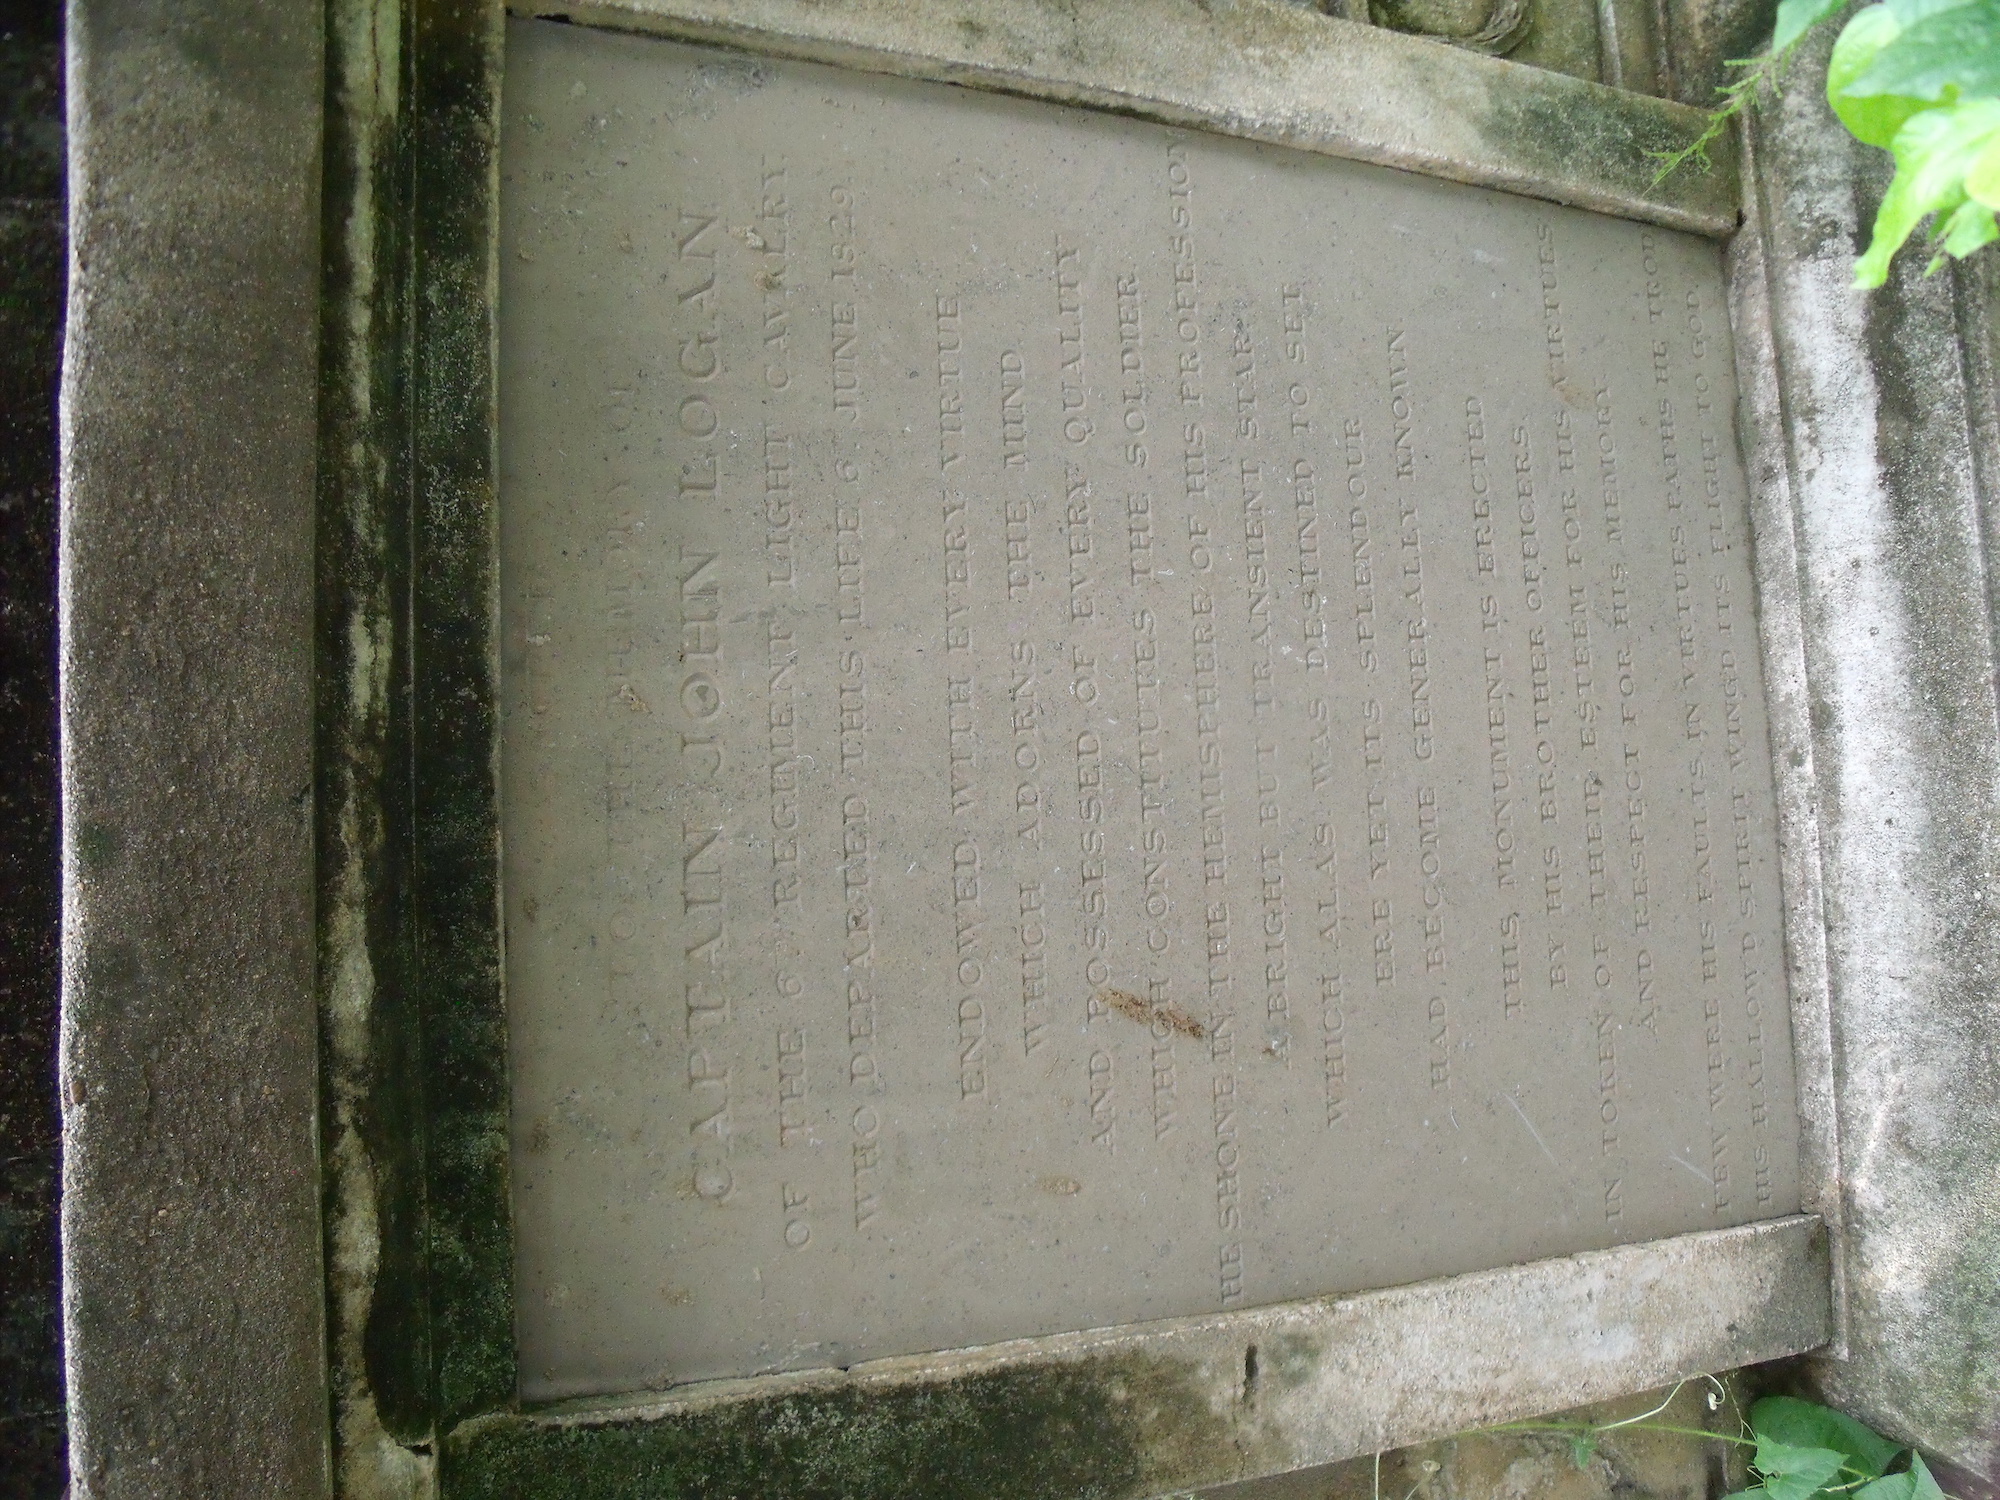 TO THE MEMORY OF
CAPTAIN JOHN LOGAN
OF THE 6TH REGIMENT LIGHT CAVALRY
WHO DEPARTED THIS LIFE 6 JUNE 1829
ENDOWED WITH EVERY VIRTUE
WHICH ADORNS THE MIND
AND POSSESSED OF EVERY QUALITY
WHICH CONSTITUTES THE SOLDIER
HE SHONE IN THE HEMISPHERE OF HIS PROFESSION
A BRIGHT BUT TRANSIENT STAR
WHICH ALAS WAS DESTINED TO SET
ERE YET ITS SPLENDOUR
HAD BECOME GENERALLY KNOWN
THIS MONUMENT IS ERECTED
BY HIS BROTHER OFFICERS
IN TOKEN OF THEIR ESTEEM FOR HIS VIRTUES
AND RESPECT FOR HIS MEMORY
FEW WERE HIS FAULTS, IN VIRTUES PATHS HE TROD
HIS HALLOWD SPIRIT WINGD ITS FLIGHT TO GOD.